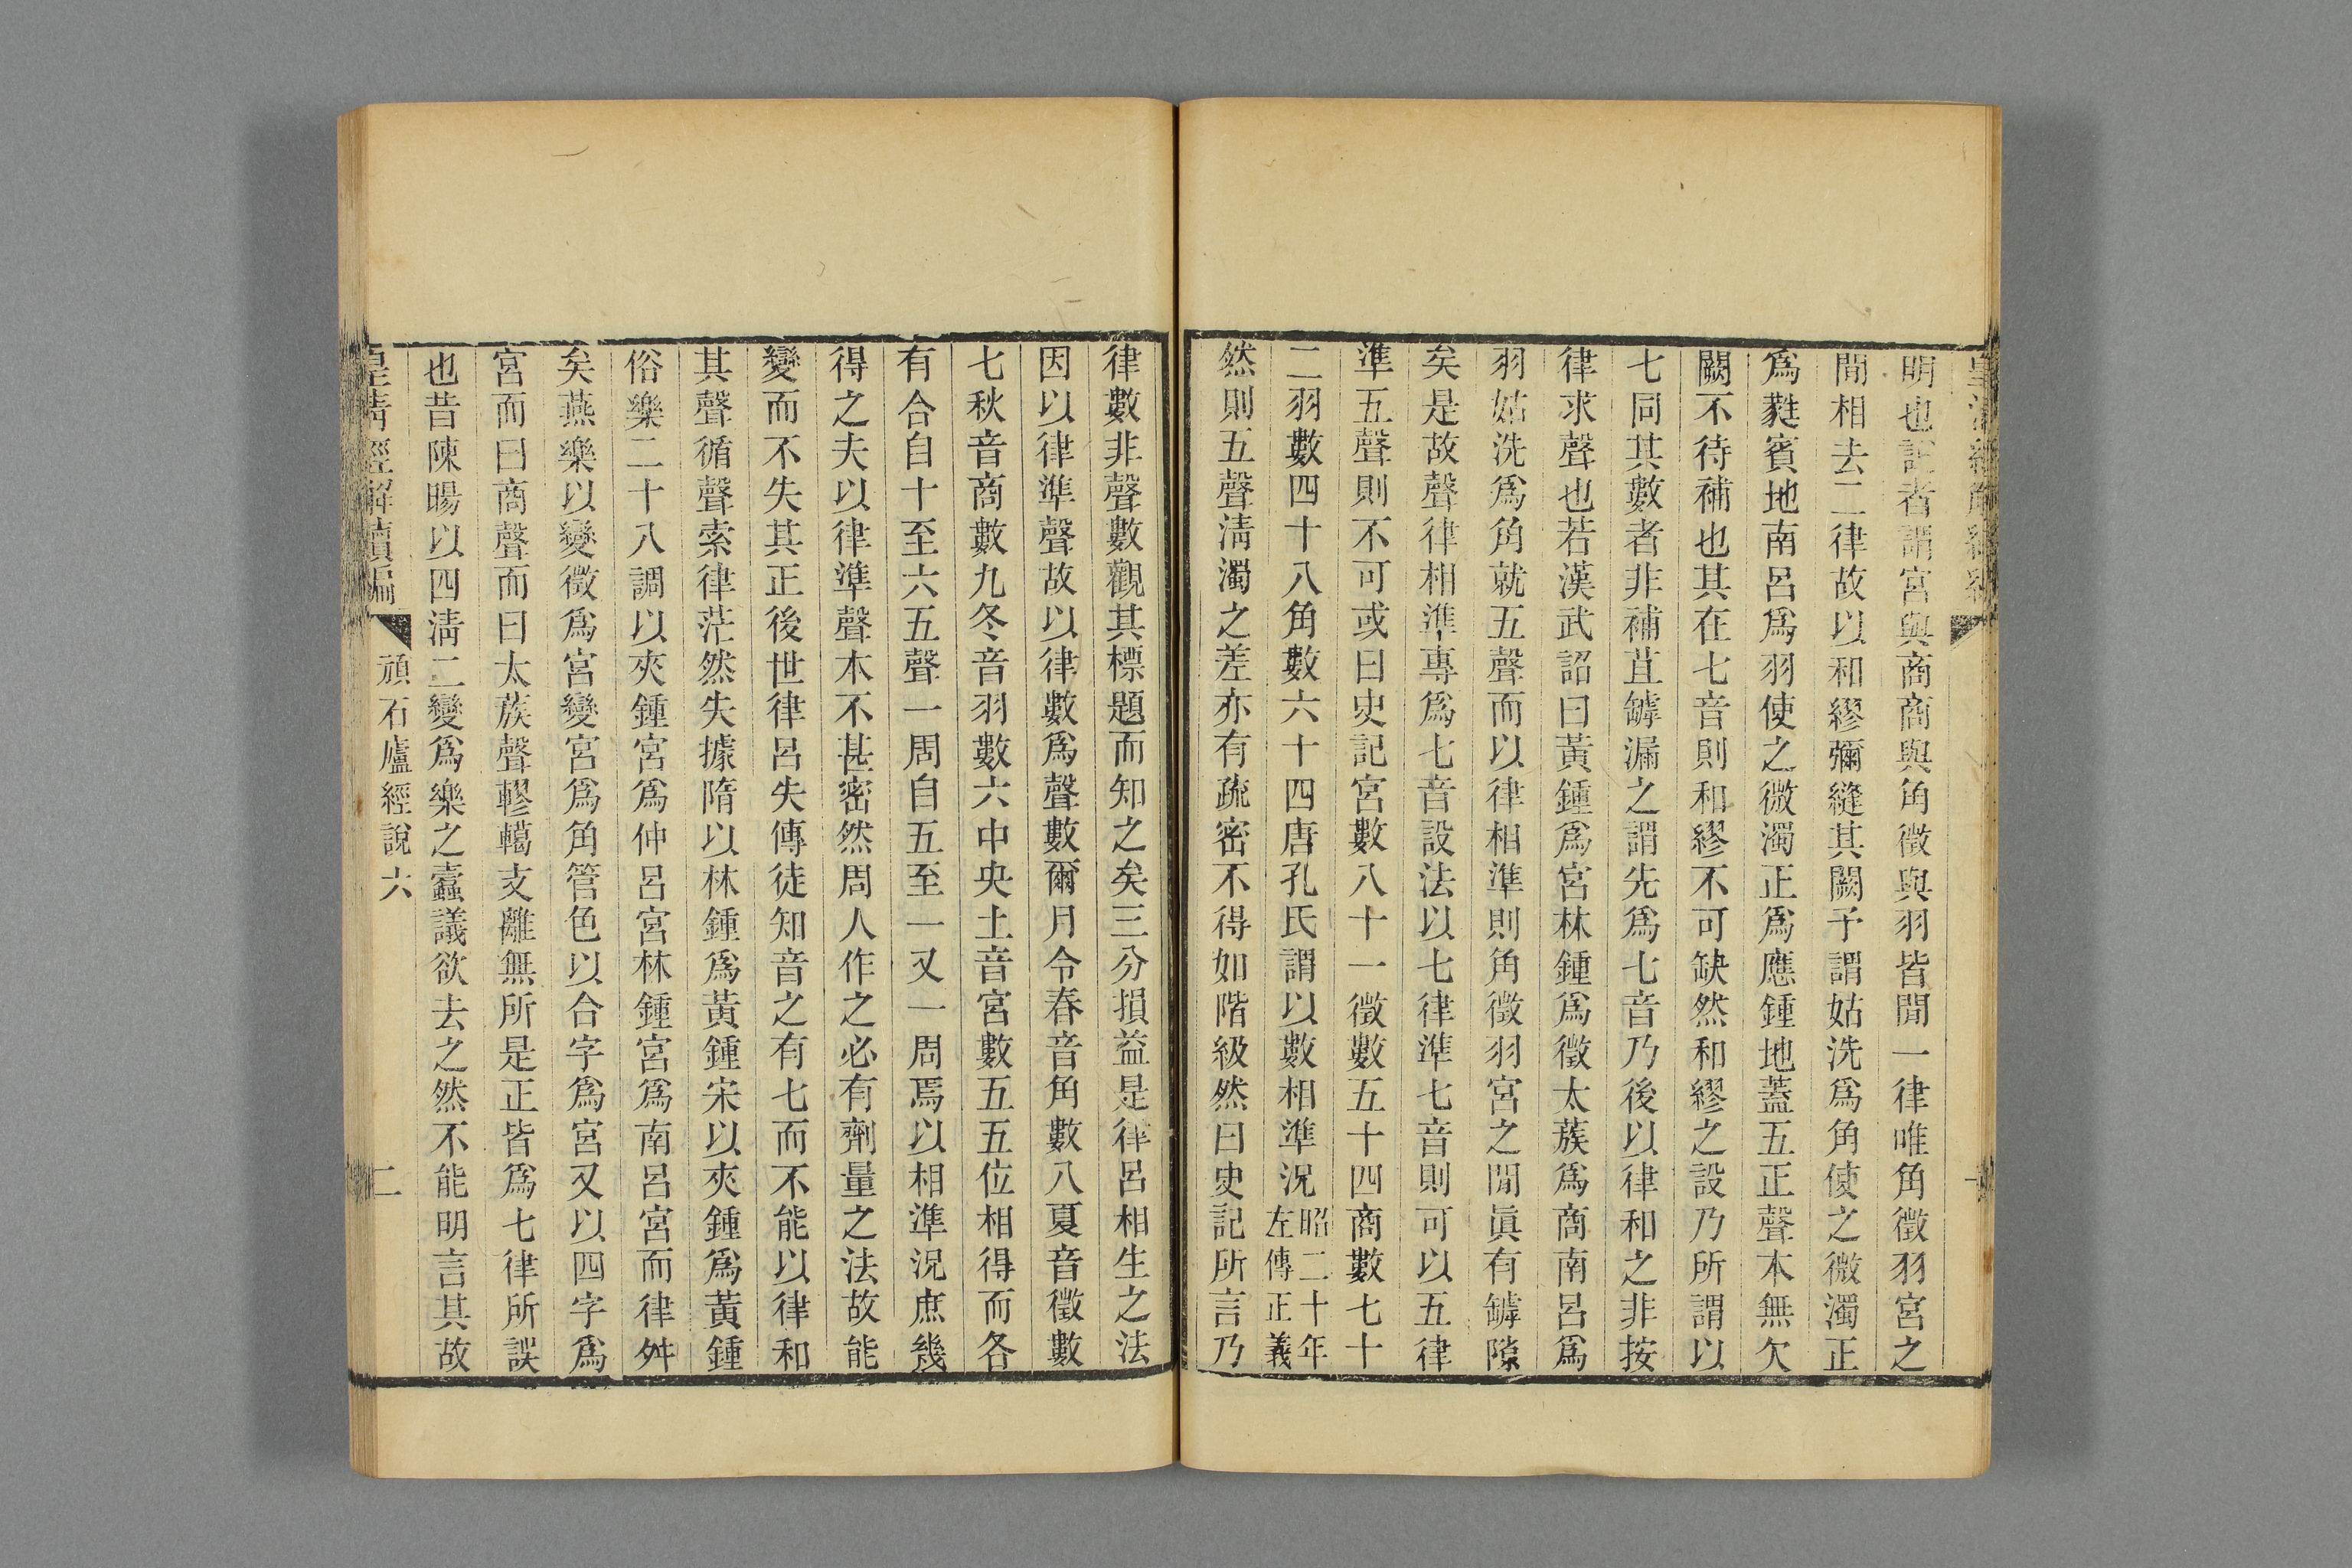 明也說者謂宮與商商與角徵與羽皆閒一律唯角徵羽宮之
閒相去二律故以和繆彌縫其闕予謂姑洗爲角使之微濁正
爲蕤賓地南呂爲羽使之微濁正爲應鍾地蓋五正聲本無欠
闕不待補也其在七音則和繆不可缺然和繆之設乃所謂以
七同其數者非補苴罅漏之謂先爲七音乃後以律和之非按
律求聲也若漢武詔曰黃鍾爲宮林鍾爲徵太蔟爲商南呂爲
羽姑洗爲角就五聲而以律相準則角徵羽宮之閒眞有罅隙
矣是故聲律相準專爲七音設法以七律準七音則可以五律
準五聲則不可或曰史記宮數八十一徵數五十四商數七十
二羽數四十八角數六十四唐孔氏謂以數相準況昭二十年左傳正義
然則五聲淸濁之差亦有疏密不得如階級然曰史記所言乃
律數非聲數觀其標題而知之矣三分損益是律呂相生之法
因以律準聲故以律數爲聲數爾月令春音角數八夏音徵數
七秋音商數九冬音羽數六中央土音宮數五五位相得而各
有合自十至六五聲一周自五至一又一周焉以相準況庶幾
得之夫以律準聲本不甚密然周人作之必有劑量之法故能
變而不失其正後世律呂失傳徒知音之有七而不能以律和
其聲循聲索律茫然失據隋以林鍾爲黃鍾宋以夾鍾爲黃鍾
俗樂二十八調以夾鍾宮爲仲呂宮林鍾宮爲南呂宮而律舛
矣燕樂以變徵爲宮變宮爲角管色以合字爲宮又以四字爲
宮而曰商聲而曰太蔟聲轇轕支離無所是正皆爲七律所誤
也昔陳暘以四淸二變爲樂之蠹議欲去之然不能明言其故
皇淸經解續編 頑石廬經說六 二